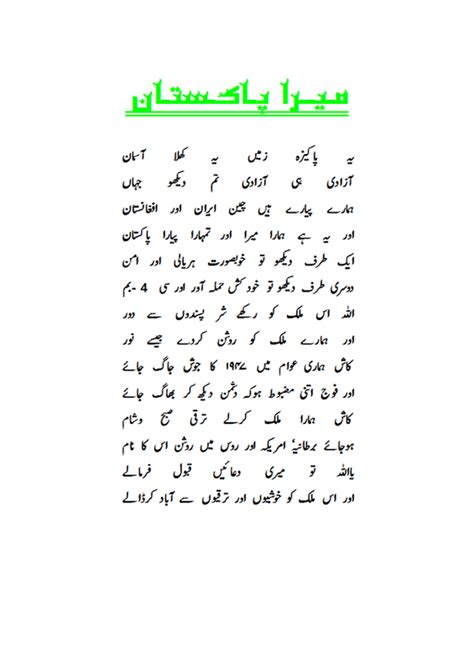 میرا پاکستان
یہ پاکیزہ زمیں یہ کھلا آسمان
آزادی ہی آزادی تم دیکھو جہاں
ہمارے پیارے ہیں چین ایران اور افغانستان
اور یہ ہے ہمارا میرا اور تمہارا پیارا پاکستان
ایک طرف دیکھو تو خوبصورت ہریالی اور امن
دوسری طرف دیکھو تو خودکش حملہ آور اور سی 4 - بم
اللہ اس ملک کو رکھے شر پسندوں سے دور
اور ہمارے ملک کو روشن کردے جیسے نور
کاش ہماری عوام میں ۱۹۴۷ کا جوش جاگ جائے
اور فوج اتنی مضبوط ہوکہ دشمن دیکھ کر بھاگ جائے
کاش ہمارا ملک کرلے ترقی صبح وشام
ہوجائے برطانیۂ امریکہ اور روس میں روشن اس کا نام
یااللہ تو میری دعائیں قبول فرمالے
اور اس ملک کو خوشیوں اور ترقیوں سے آباد کرڈالے